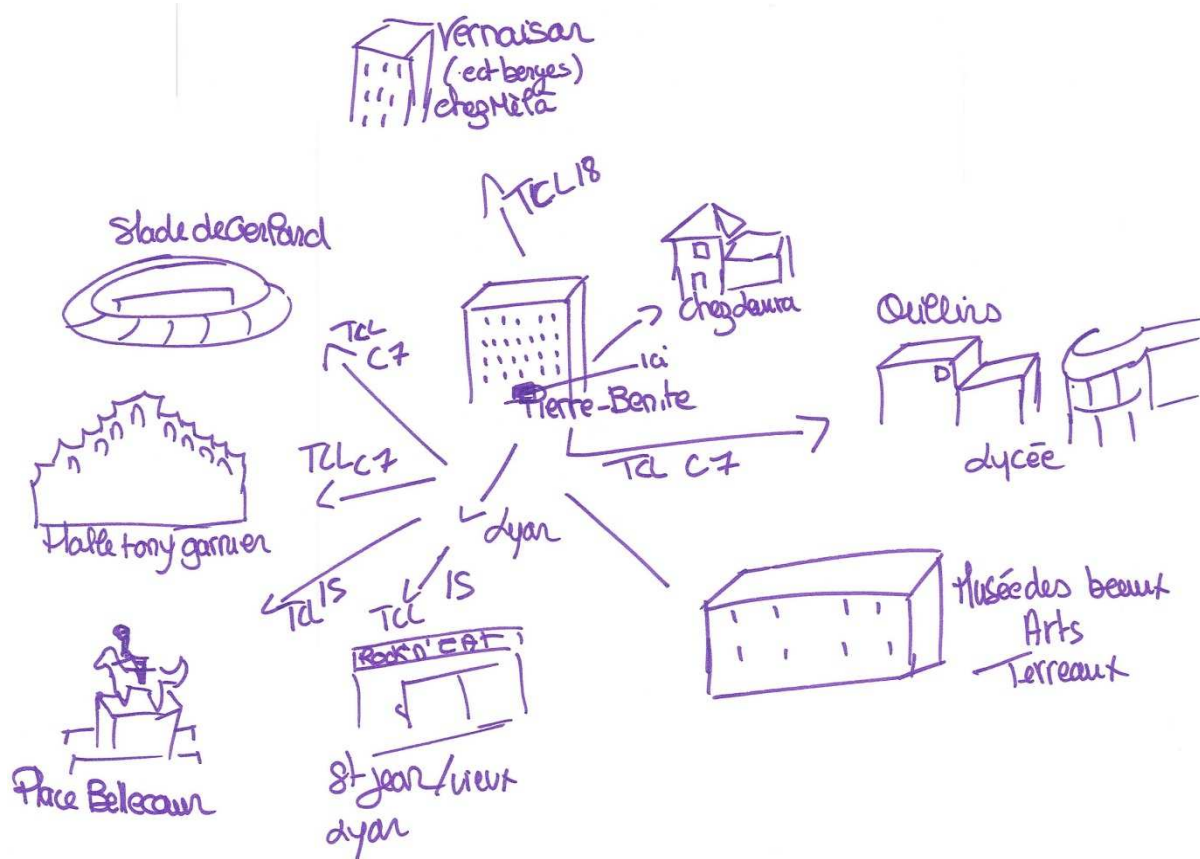 Vernaison
(ect berges)
chez Mèla
TCL 18
Stade de Gerland
chez Laura
ici
Pierre-Benite
Oullins
Lycée
TCL C7
TCL
C7
TCL C7
Lyon
Halle tony garnier
TCL 15
TCL 15
ROCK N' EAT
Musée des beaux
Arts
Terreaux
Place Bellecour
St jean/vieux
Lyon